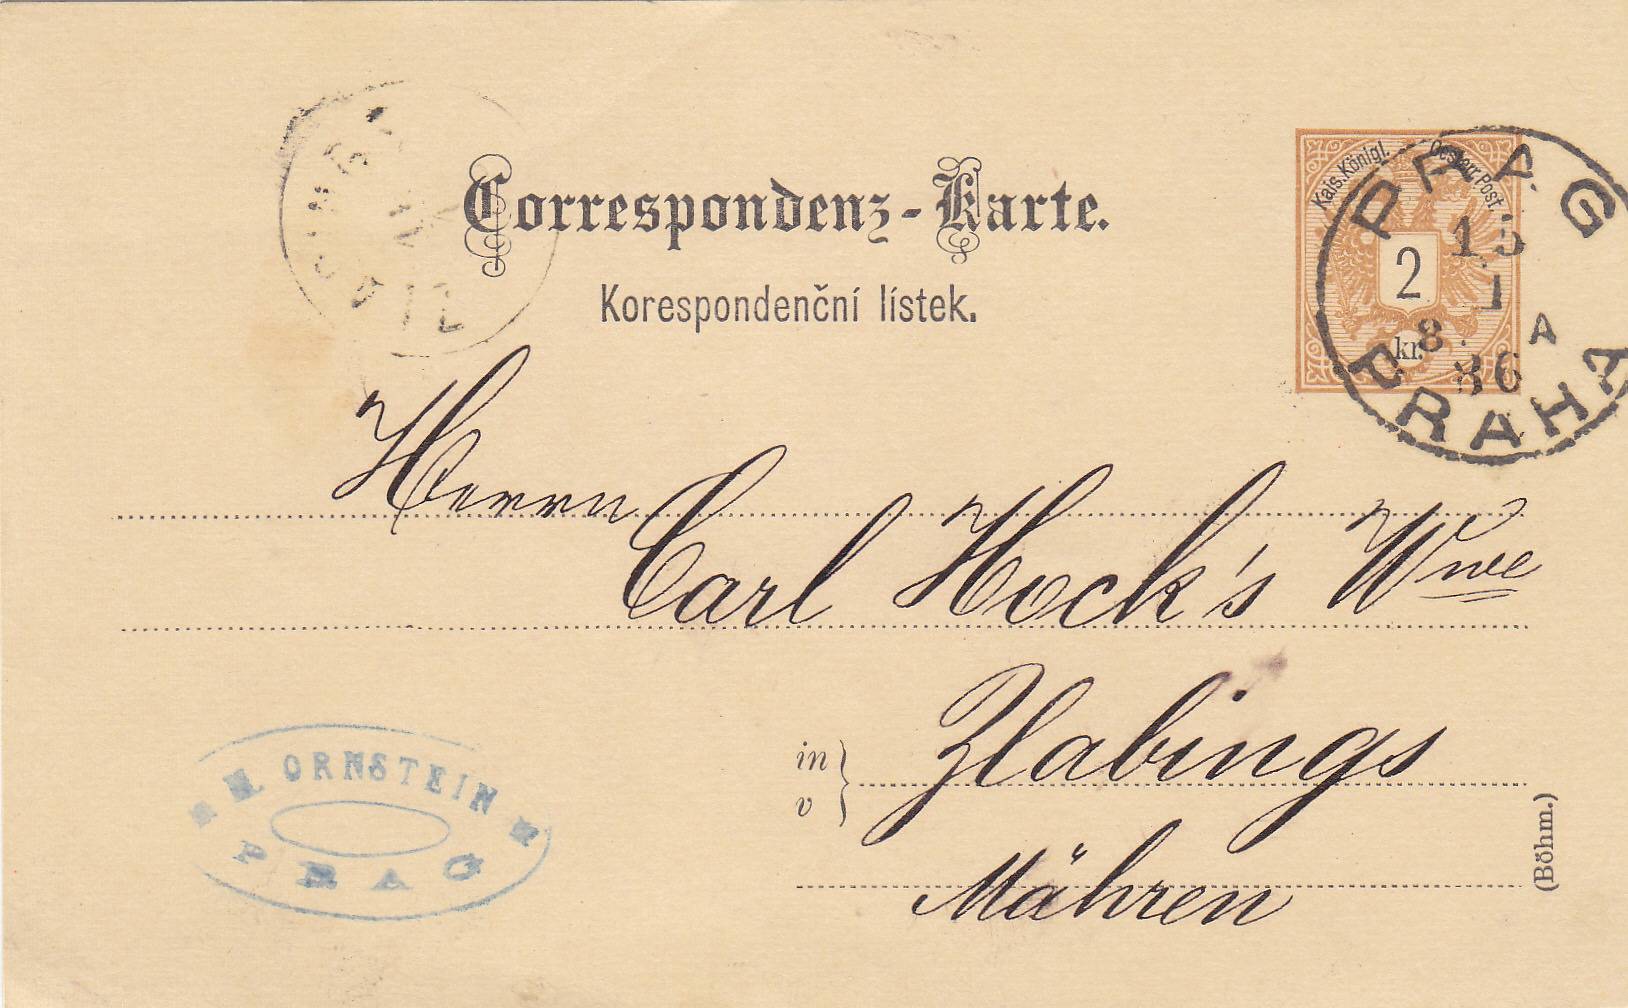 Correspondenz-Karte.
Korespondenční lístek.
Kais. Königl. Oesterr. Post.
2
kr.
PRAG
15
1
8. A
86
PRAHA
Herrn
Carl Hock's Wwe
in
v
Zlabings
Mähren
(Böhm.)
M. ORNSTEIN
PRAG